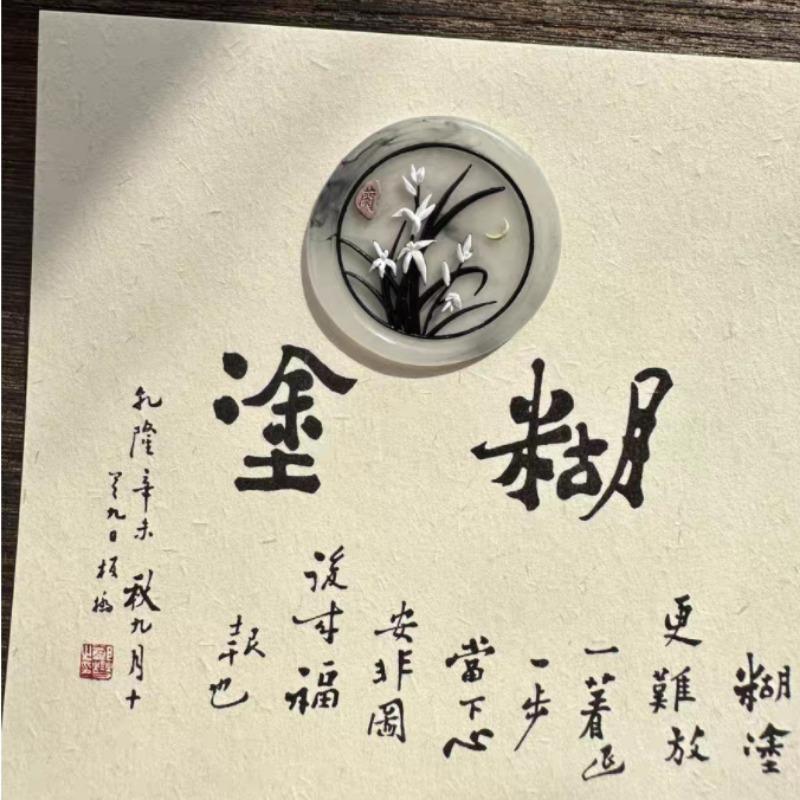 糊塗
糊塗
更難放
一著退
一步
當下心
安非圖
後來福
報也
乾隆辛未秋九月十
九日板橋